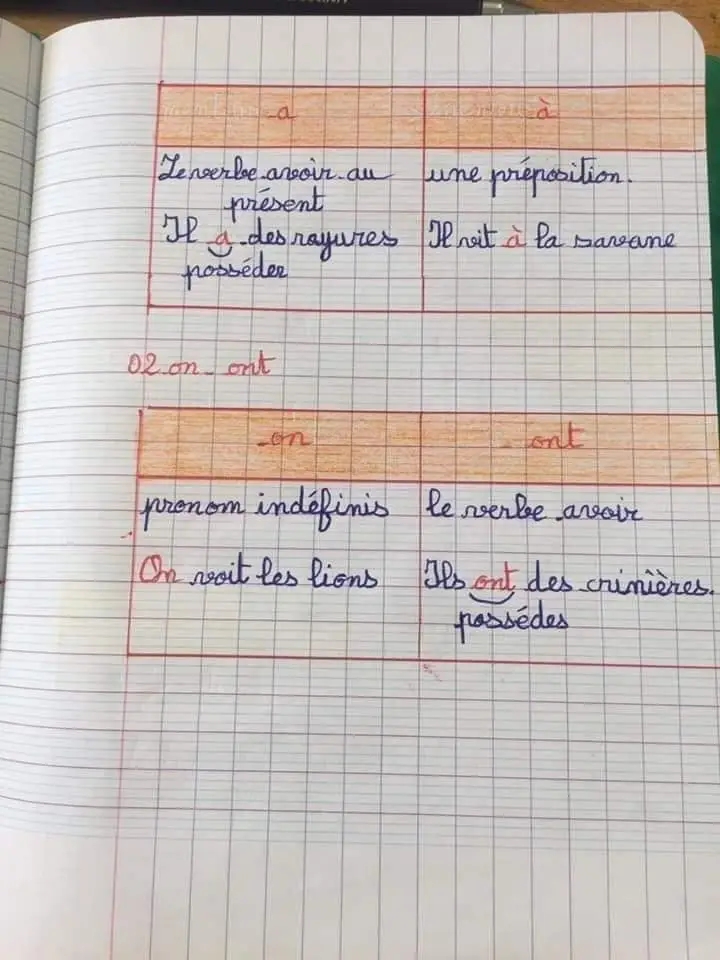 a
à
Le verbe avoir au
présent
Il a des rayures
posséder
une préposition.
Il vit à la savane
02 on - ont
on
ont
pronom indéfinis
On voit les lions
le verbe avoir
Ils ont des crinières.
possédes